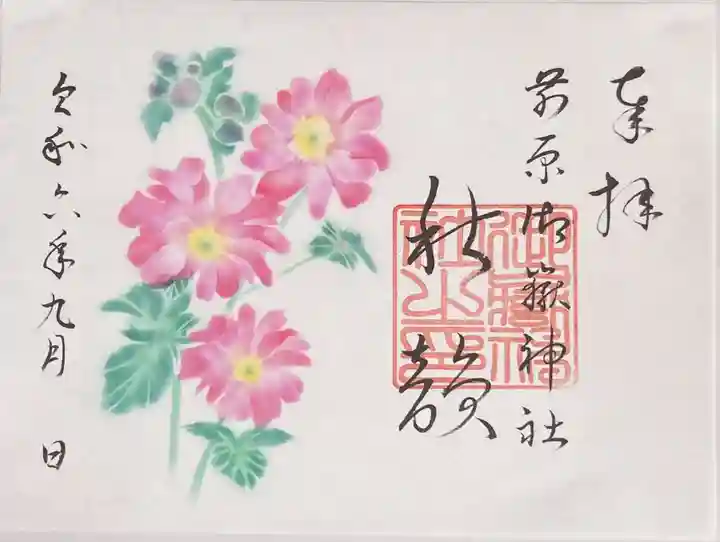 奉拝
前原御嶽神社
秋韻
御嶽神社之印
令和六年九月 日